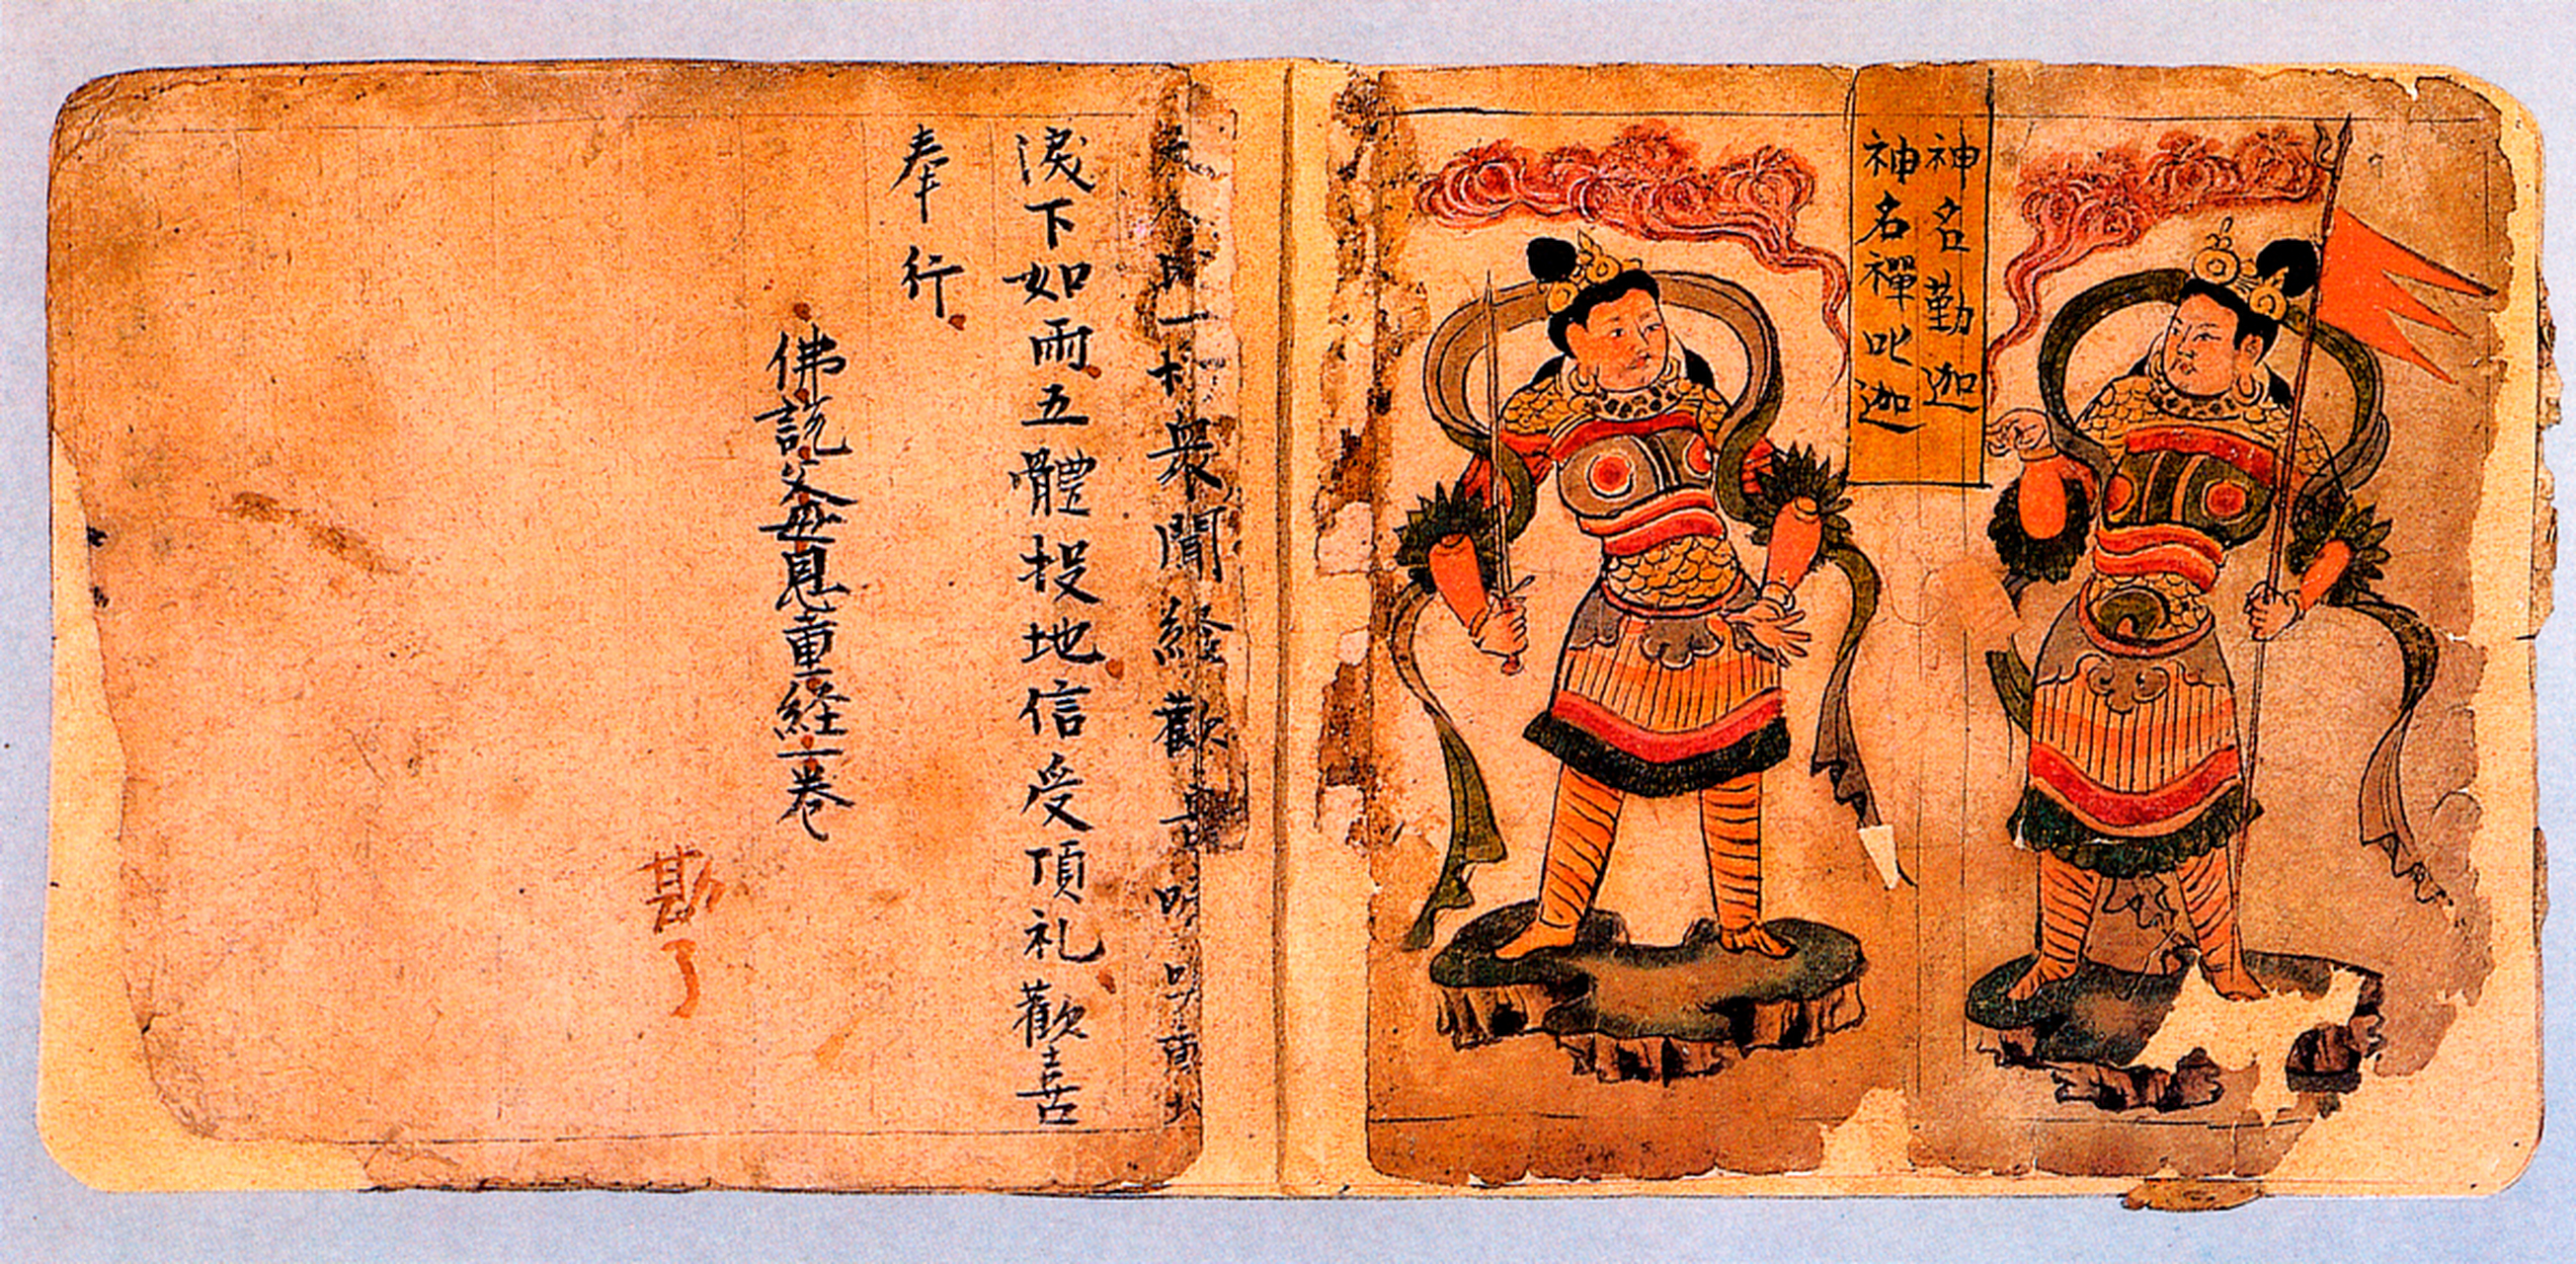 神名勤迦
神名禪叱迦
一切衆聞經歡喜
淚下如雨五體投地信受頂礼歡喜
奉行
佛說父母恩重経一卷
勘了